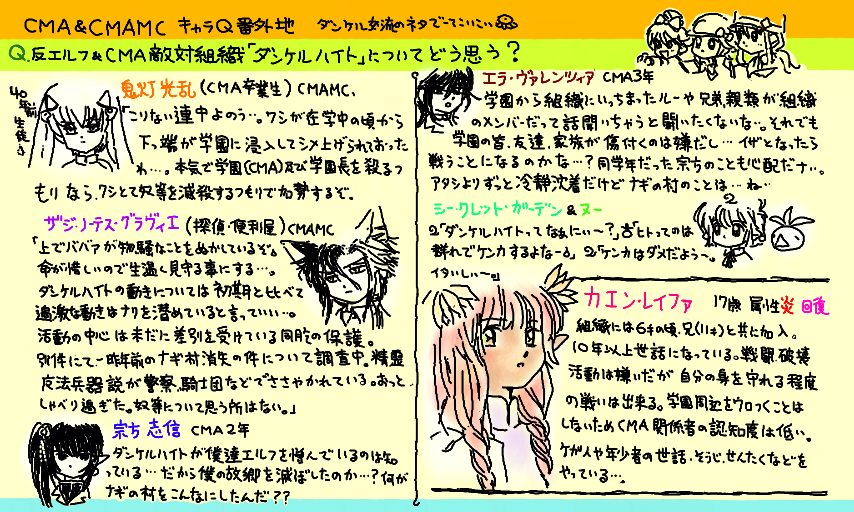 CMA&CMAMC キャラQ番外地 ダンケル交流のネタでーてこいこい
Q.反エルフ&CMA敵対組織「ダンケルハイト」についてどう思う?
40年前生徒
鬼灯光乱(CMA卒業生)CMAMC、
「こりない連中よのう…。ワシが在学中の頃から
下っ端が学園に浸入してシメ上げられておった
わ…。本気で学園(CMA)及び学園長を殺るつ
もりなら、ワシとて奴等を滅殺するつもりで加勢するぞ。
ザジ・ノーテス・グラヴィエ(探偵・便利屋)CMAMC
「上でババアが物騒なことをぬかしているぞ。
命が惜しいので生温く見守る事にする…。
ダンケルハイトの動きについては初期と比べて
過激な動きはナリを潜めていると言っていい…。
活動の中心は未だに差別を受けている同胞の保護。
別件にて、一昨年前のナギ村消失の件について調査中。精霊
反法兵器説が警察、騎士団などでささやかれている。おっと、
しゃべり過ぎた。奴等について思う所はない。」
宗ち志信 CMA2年
ダンケルハイトが僕達エルフを憎んでいるのは知
っている…だから僕の故郷を滅ぼしたのか…?何が
ナギの村をこんなにしたんだ??
エラ・ヴァレンツィア CMA3年
学園から組織にいっちまったルーや兄弟、親類が組織
のメンバーだって話聞いちゃうと闘いたくないな…。それでも
学園の皆、友達、家族が傷付くのは嫌だし…イザとなったら
戦うことになるのかな…?同学年だった宗ちのことも心配だナ…。
アタシよりずっと冷静沈着だけどナギの村のことは…ね…
シークレット・ガーデン&ヌー
「ダンケルハイトってなぁにぃ〜?」「ヒトってのは
群れでケンカするよな〜」ケンカはダメだよう〜。
イタいしぃ〜」
カエン・レイファ 17歳 属性炎 回復
組織には6才の頃、兄(11才)と共に加入。
10年以上世話になっている。戦闘、破壊
活動は嫌いだが自分の身を守れる程度
の戦いは出来る。学園周辺をウロつくことは
しないためCMA関係者の認知度は低い。
ケガ人や年少者の世話・そうじ、せんたくなどを
やっている…。